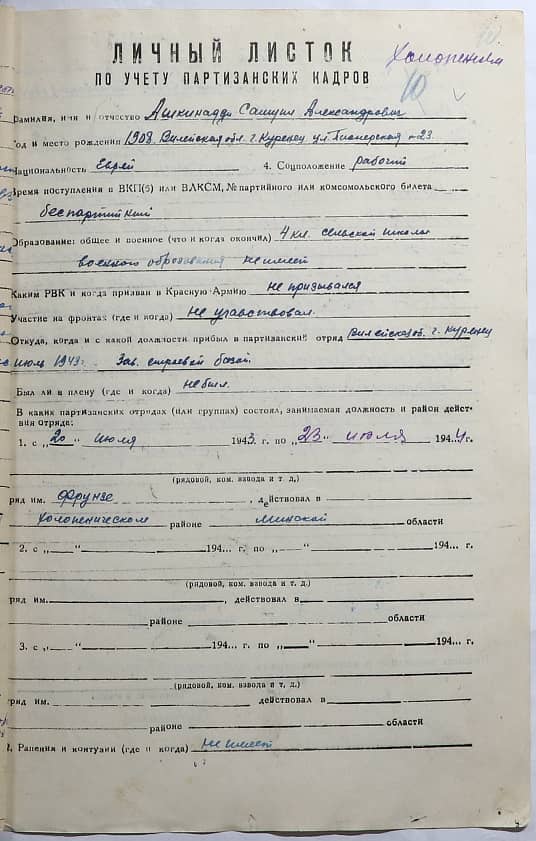 ЛИЧНЫЙ ЛИСТОК
Холопеничи
ПО УЧЕТУ ПАРТИЗАНСКИХ КАДРОВ
10
Фамилия, имя и отчество Ашкинадзи Самуил Александрович
год и место рождения 1908. Вилейская обл. г. Куренец ул. Пионерская 23.
Национальность Еврей 4. Соцположение рабочий
Время поступления в ВКП(б) или ВЛКСМ, № партийного или комсомольского билета
беспартийный
Образование: общее и военное (что и когда окончил) 4 кл. сельской школы
военного образования не имеет
Каким РВК и когда призван в Красную Армию не призывался
Участие на фронтах (где и когда) не участвовал.
Откуда, когда и с какой должности прибыл в партизанский отряд Вилейская об. г. Куренец
июль 1943г. Зав. базой
Был ли в плену (где и когда) не был.
В каких партизанских отрядах (или группах) состоял, занимаемая должность и район дейст-
вия отряда:
1. с „20" июля 1943 г. по „23" июля 1944 г.
(рядовой, ком. взвода и т. д.)
ряд им. Фрунзе, действовал в
Холопеническом районе Минской области
2. с „ " 194... г. по „ " 194... г.
(рядовой, ком. взвода и т. д.)
ряд им. , действовал в
районе области
3. с „ " 194... г. по „ " 194... г.
(рядовой, ком. взвода и т. д.)
ряд им. действовал в
районе области
Ранения и контузии (где и когда) не имеет